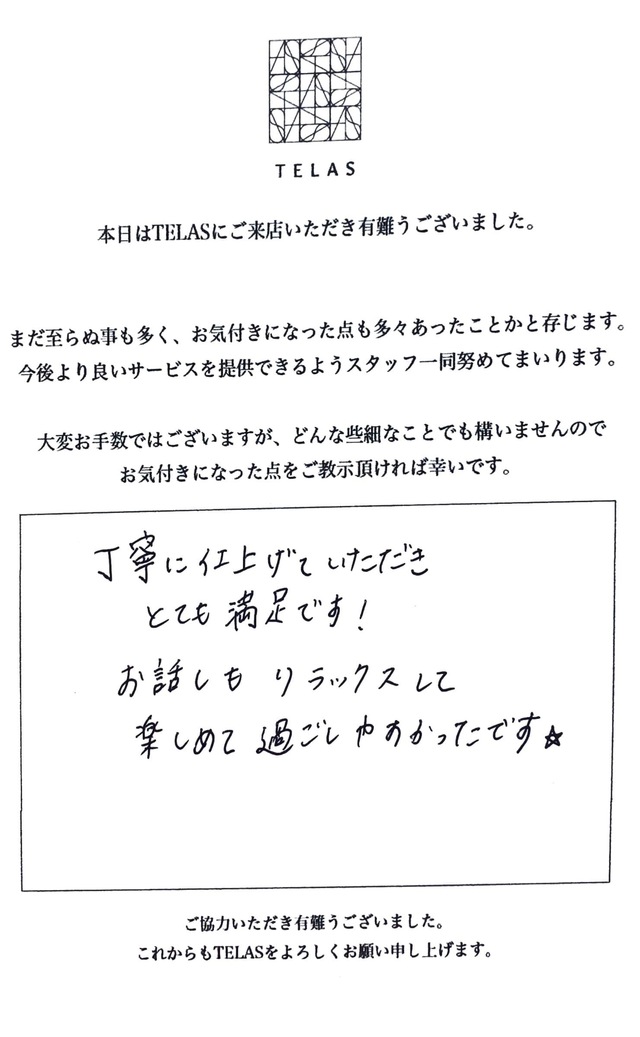 TELAS
本日はTELASにご来店いただき有難うございました。
まだ至らぬ事も多く、お気付きになった点も多々あったことかと存じます。
今後より良いサービスを提供できるようスタッフ一同努めてまいります。
大変お手数ではございますが、どんな些細なことでも構いませんので
お気付きになった点をご教示頂ければ幸いです。
丁寧に仕上げていただき
とても満足です!
お話しも リラックスして
楽しめて 過ごしやすかったです☆
ご協力いただき有難うございました。
これからもTELASをよろしくお願い申し上げます。